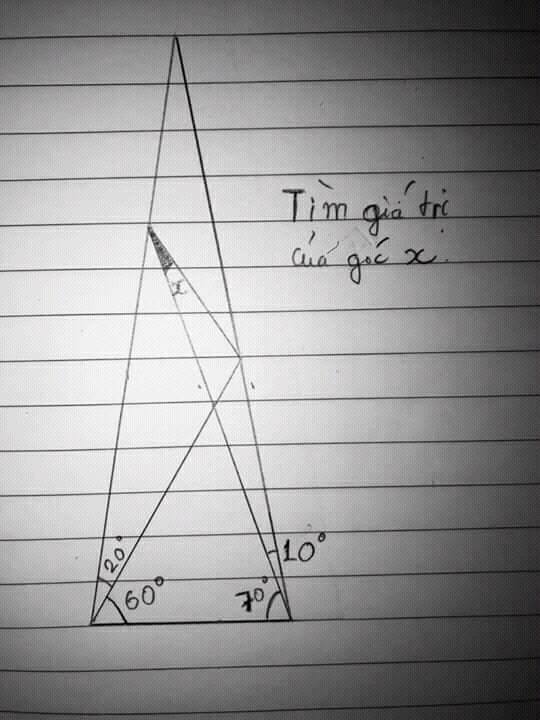 Tìm giá trị
của góc x.
x
20°
10°
60°
70°